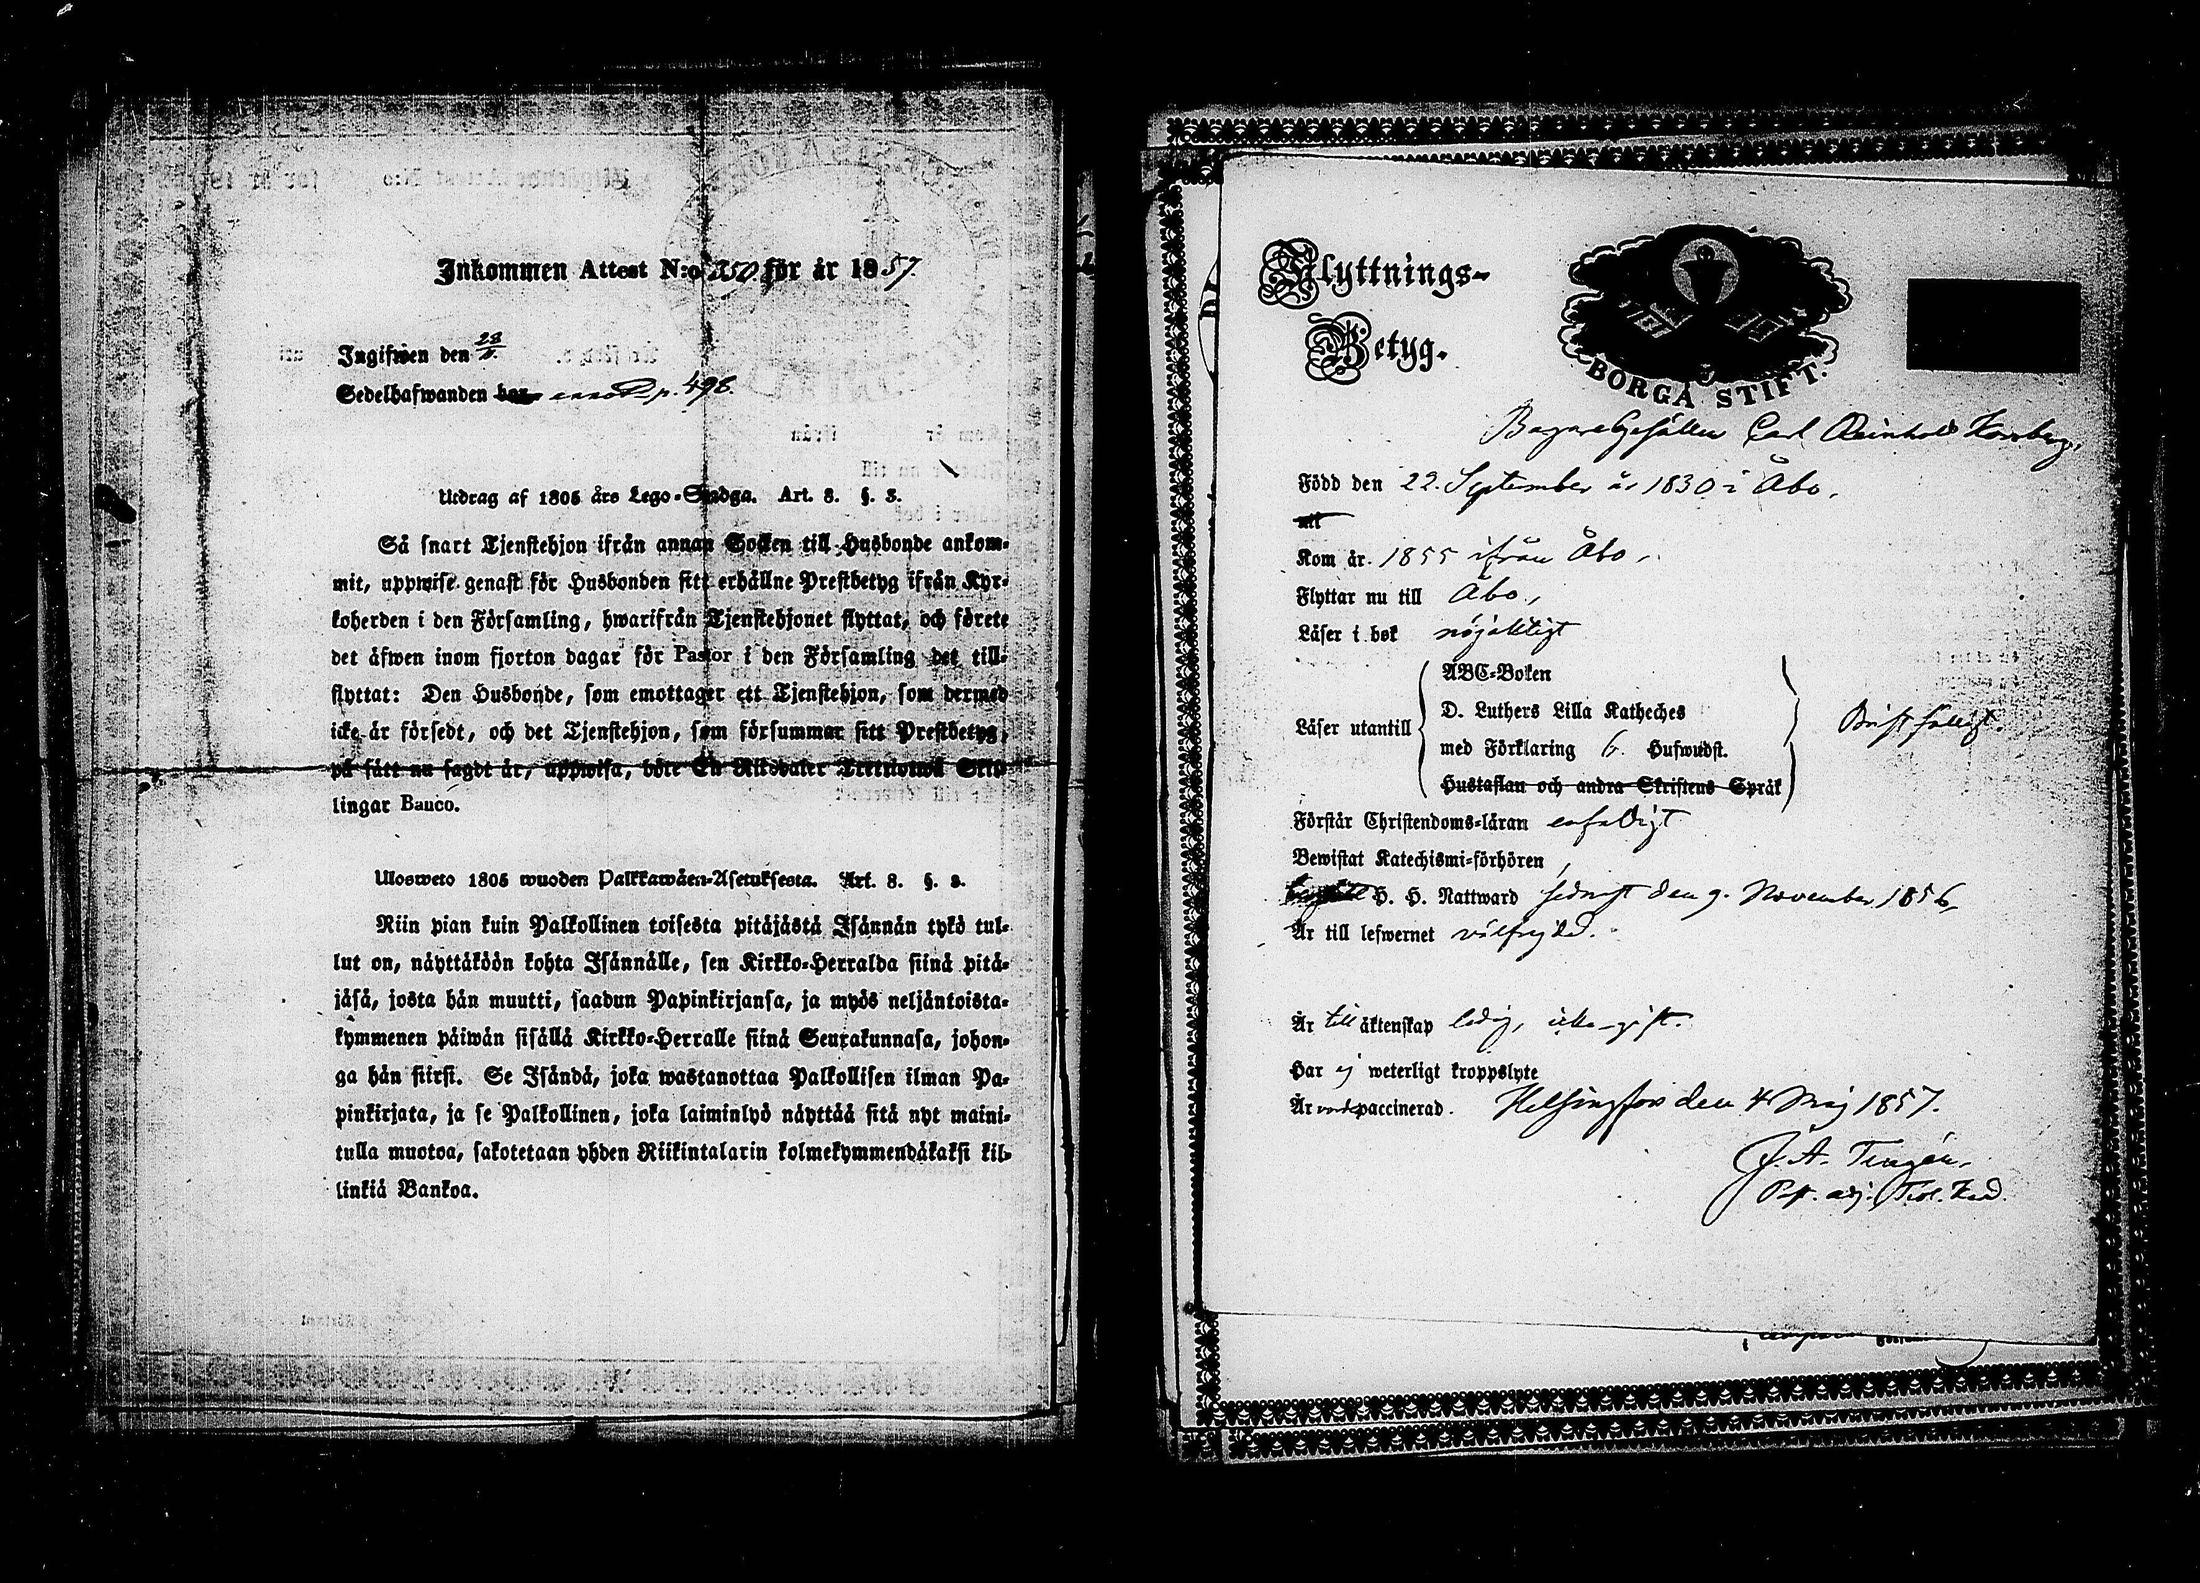 Inkommen Attest N:o 250 för år 1857.
Ingifwen den 23/5.
Sedelhafwanden p. 498.
Utdrag af 1805 års Lego-Stadga. Art. 8. §. 3.
Så snart Tjenstehjon ifrån annan Socken till Husbonde ankom-
mit, uppwise genast för Husbonden sitt erhållne Prestbetyg ifrån Kyr-
koherden i den Församling, hwarifrån Tjenstehjonet flyttat, och förete
det äfwen inom fjorton dagar för Pastor i den Församling det till-
flyttat: Den Husbonde, som emottager ett Tjenstehjon, som dermed
icke är försedt, och det Tjenstehjon, som försummar sitt Prestbetyg,
på sätt nu sagdt är, uppwisa, böte En Riksdaler Trettiotwå Skil-
lingar Banco.
Ulosweto 1805 wuoden Palkkawäen-Asetuksesta. Art. 8. §. 3.
Niin pian kuin Palkollinen toisesta pitäjästä Isännän tykö tul-
lut on, näyttäköön kohta Isännälle, sen Kirkko-Herralda siinä pitä-
jäsä, josta hän muutti, saadun Papinkirjansa, ja myös neljäntoista-
kymmenen päiwän sisällä Kirkko-Herralle siinä Seurakunnasa, johon-
ga hän siirsi. Se Isändä, joka wastanottaa Palkollisen ilman Pa-
pinkirjata, ja se Palkollinen, joka laiminlyö näyttää sitä nyt maini-
tulla muotoa, sakotetaan yhden Riikintalarin kolmekymmendäkaksi kil-
linkiä Bankoa.
Flyttnings-
Betyg.
BORGÅ STIFT.
Bagaregesällen Carl Reinhold
Född den 22. September år 1830 i Åbo.
Kom år 1855 ifrån Åbo,
Flyttar nu till Åbo,
Läser i bok nöjaktigt
Läser utantill
ABC-Boken
D. Luthers Lilla Katheches
med Förklaring 6. Hufwudst.
Hustaflan och andra Skriftens Språk
Bristfälligt.
Förstår Christendoms-läran enfaldigt
Bewistat Katechismi-förhören
H. H. Nattward sednast den 9. November 1856,
Är till lefwernet välfrejdad.
Är till äktenskap ledig, icke gift.
Har ej weterligt kroppslyte
Är vaccinerad. Helsingfors den 4 Maj 1857.